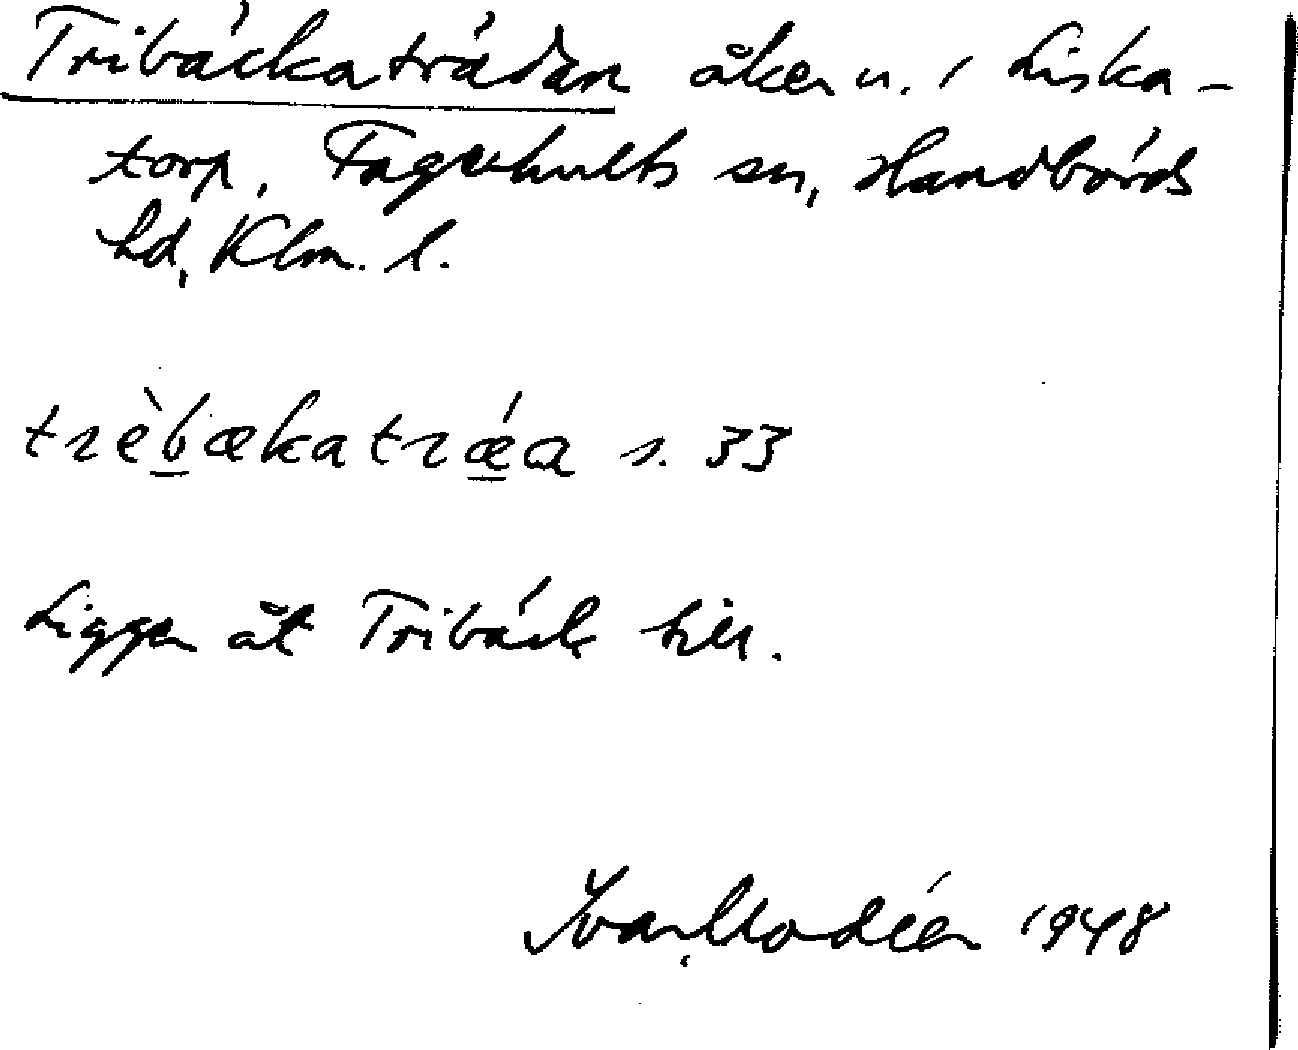 Tribäckaträdan åker n. i Liska-
torp, Fagerhults sn, Handbörds
hd, Klm. l.
trèbækatrǽa s. 33
Ligger åt Tribäck till.
Ivar Modéer 1948